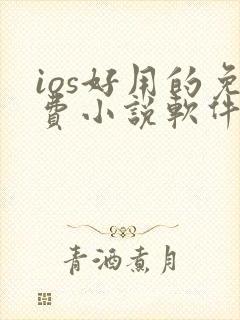 ios好用的免
費小說軟件
青酒煮月